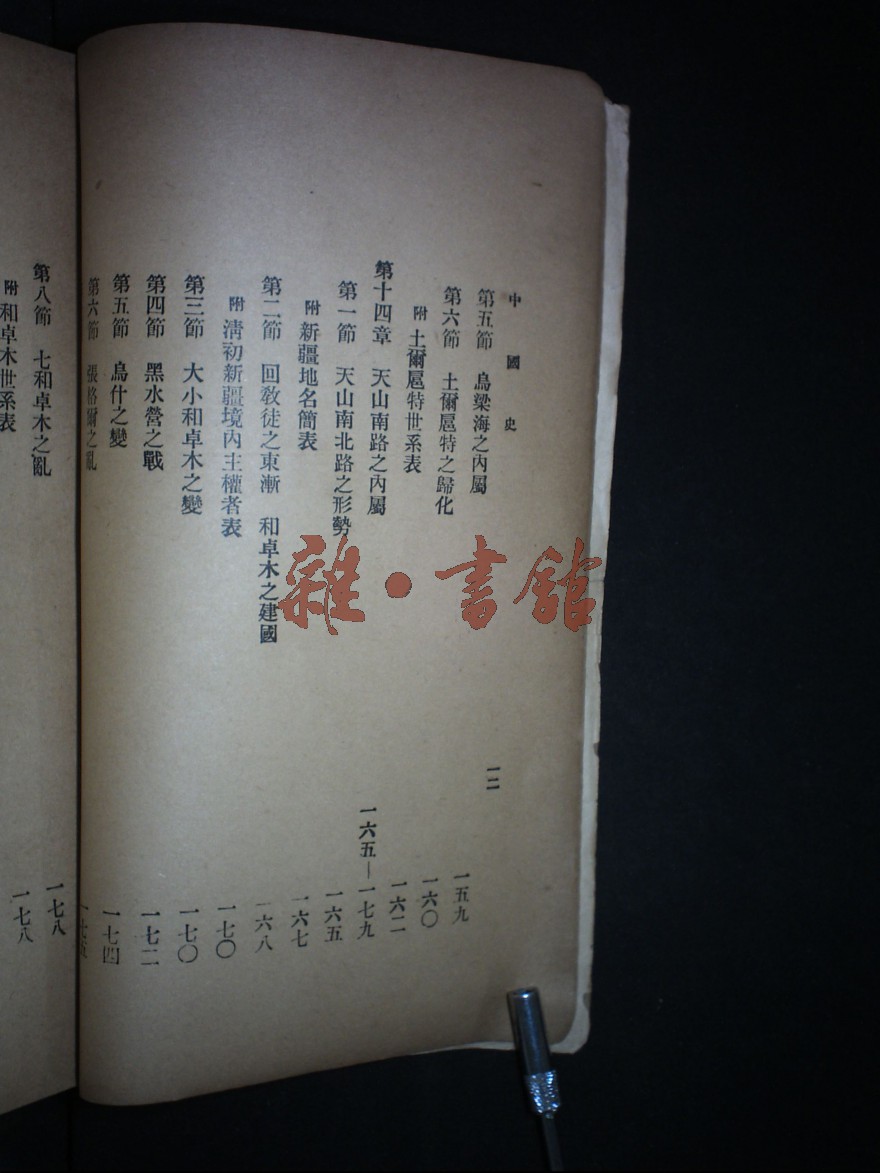 中國史
一二
第五節　烏梁海之內屬　一五九
第六節　土爾扈特之歸化　一六〇
附　土爾扈特世系表　一六二
第十四章　天山南路之內屬　一六五—一七九
第一節　天山南北路之形勢　一六五
附　新疆地名簡表　一六七
第二節　回教徒之東漸　和卓木之建國　一六八
附　清初新疆境內主權者表　一七〇
第三節　大小和卓木之變　一七〇
第四節　黑水營之戰　一七二
第五節　烏什之變　一七四
第六節　張格爾之亂　一七五
第八節　七和卓木之亂　一七八
附　和卓木世系表　一七八
雜·書館